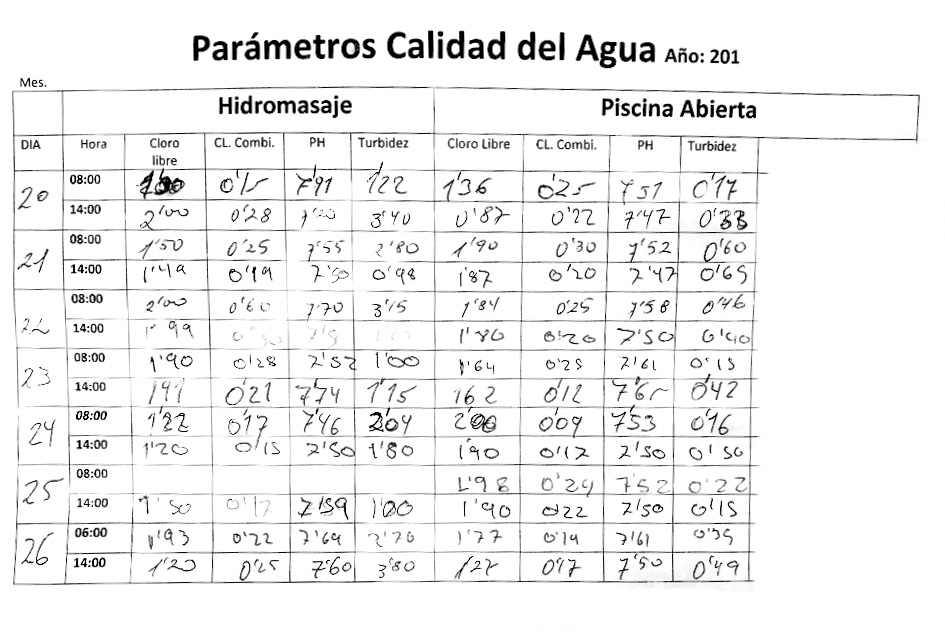 Parámetros Calidad del Agua Año: 201
Mes.
Hidromasaje Piscina Abierta
DIA Hora Cloro libre CL. Combi. PH Turbidez Cloro Libre CL. Combi. PH Turbidez
20 08:00 0'15 7'91 1'22 1'36 0'25 751 0'17
14:00 2'00 0'28 7'20 3'40 0'87 0'22 7'47 0'33
21 08:00 1'50 0'25 7'55 2'80 1'90 0'30 7'52 0'60
14:00 1'49 0'19 7'50 0'98 1'87 0'20 7'47 0'65
22 08:00 2'00 0'60 7'70 3'15 1'84 0'25 7'58 0'46
14:00 1'99 1'80 0'20 7'50 0'40
23 08:00 1'90 0'28 7'52 1'00 1'64 0'25 7'61 0'15
14:00 191 0'21 774 1'15 162 0'12 7'65 0'42
24 08:00 1'22 0'17 7'46 204 200 0'09 7'53 0'16
14:00 1'20 0'15 7'50 1'80 1'90 0'12 7'50 0'50
25 08:00 1'98 0'24 7'52 0'22
14:00 1'50 0'17 7'59 1'00 1'90 0'22 7'50 0'15
26 06:00 1'93 0'22 7'69 2'70 1'77 0'19 7'61 0'39
14:00 1'20 0'25 7'60 3'80 1'27 0'17 7'50 0'49